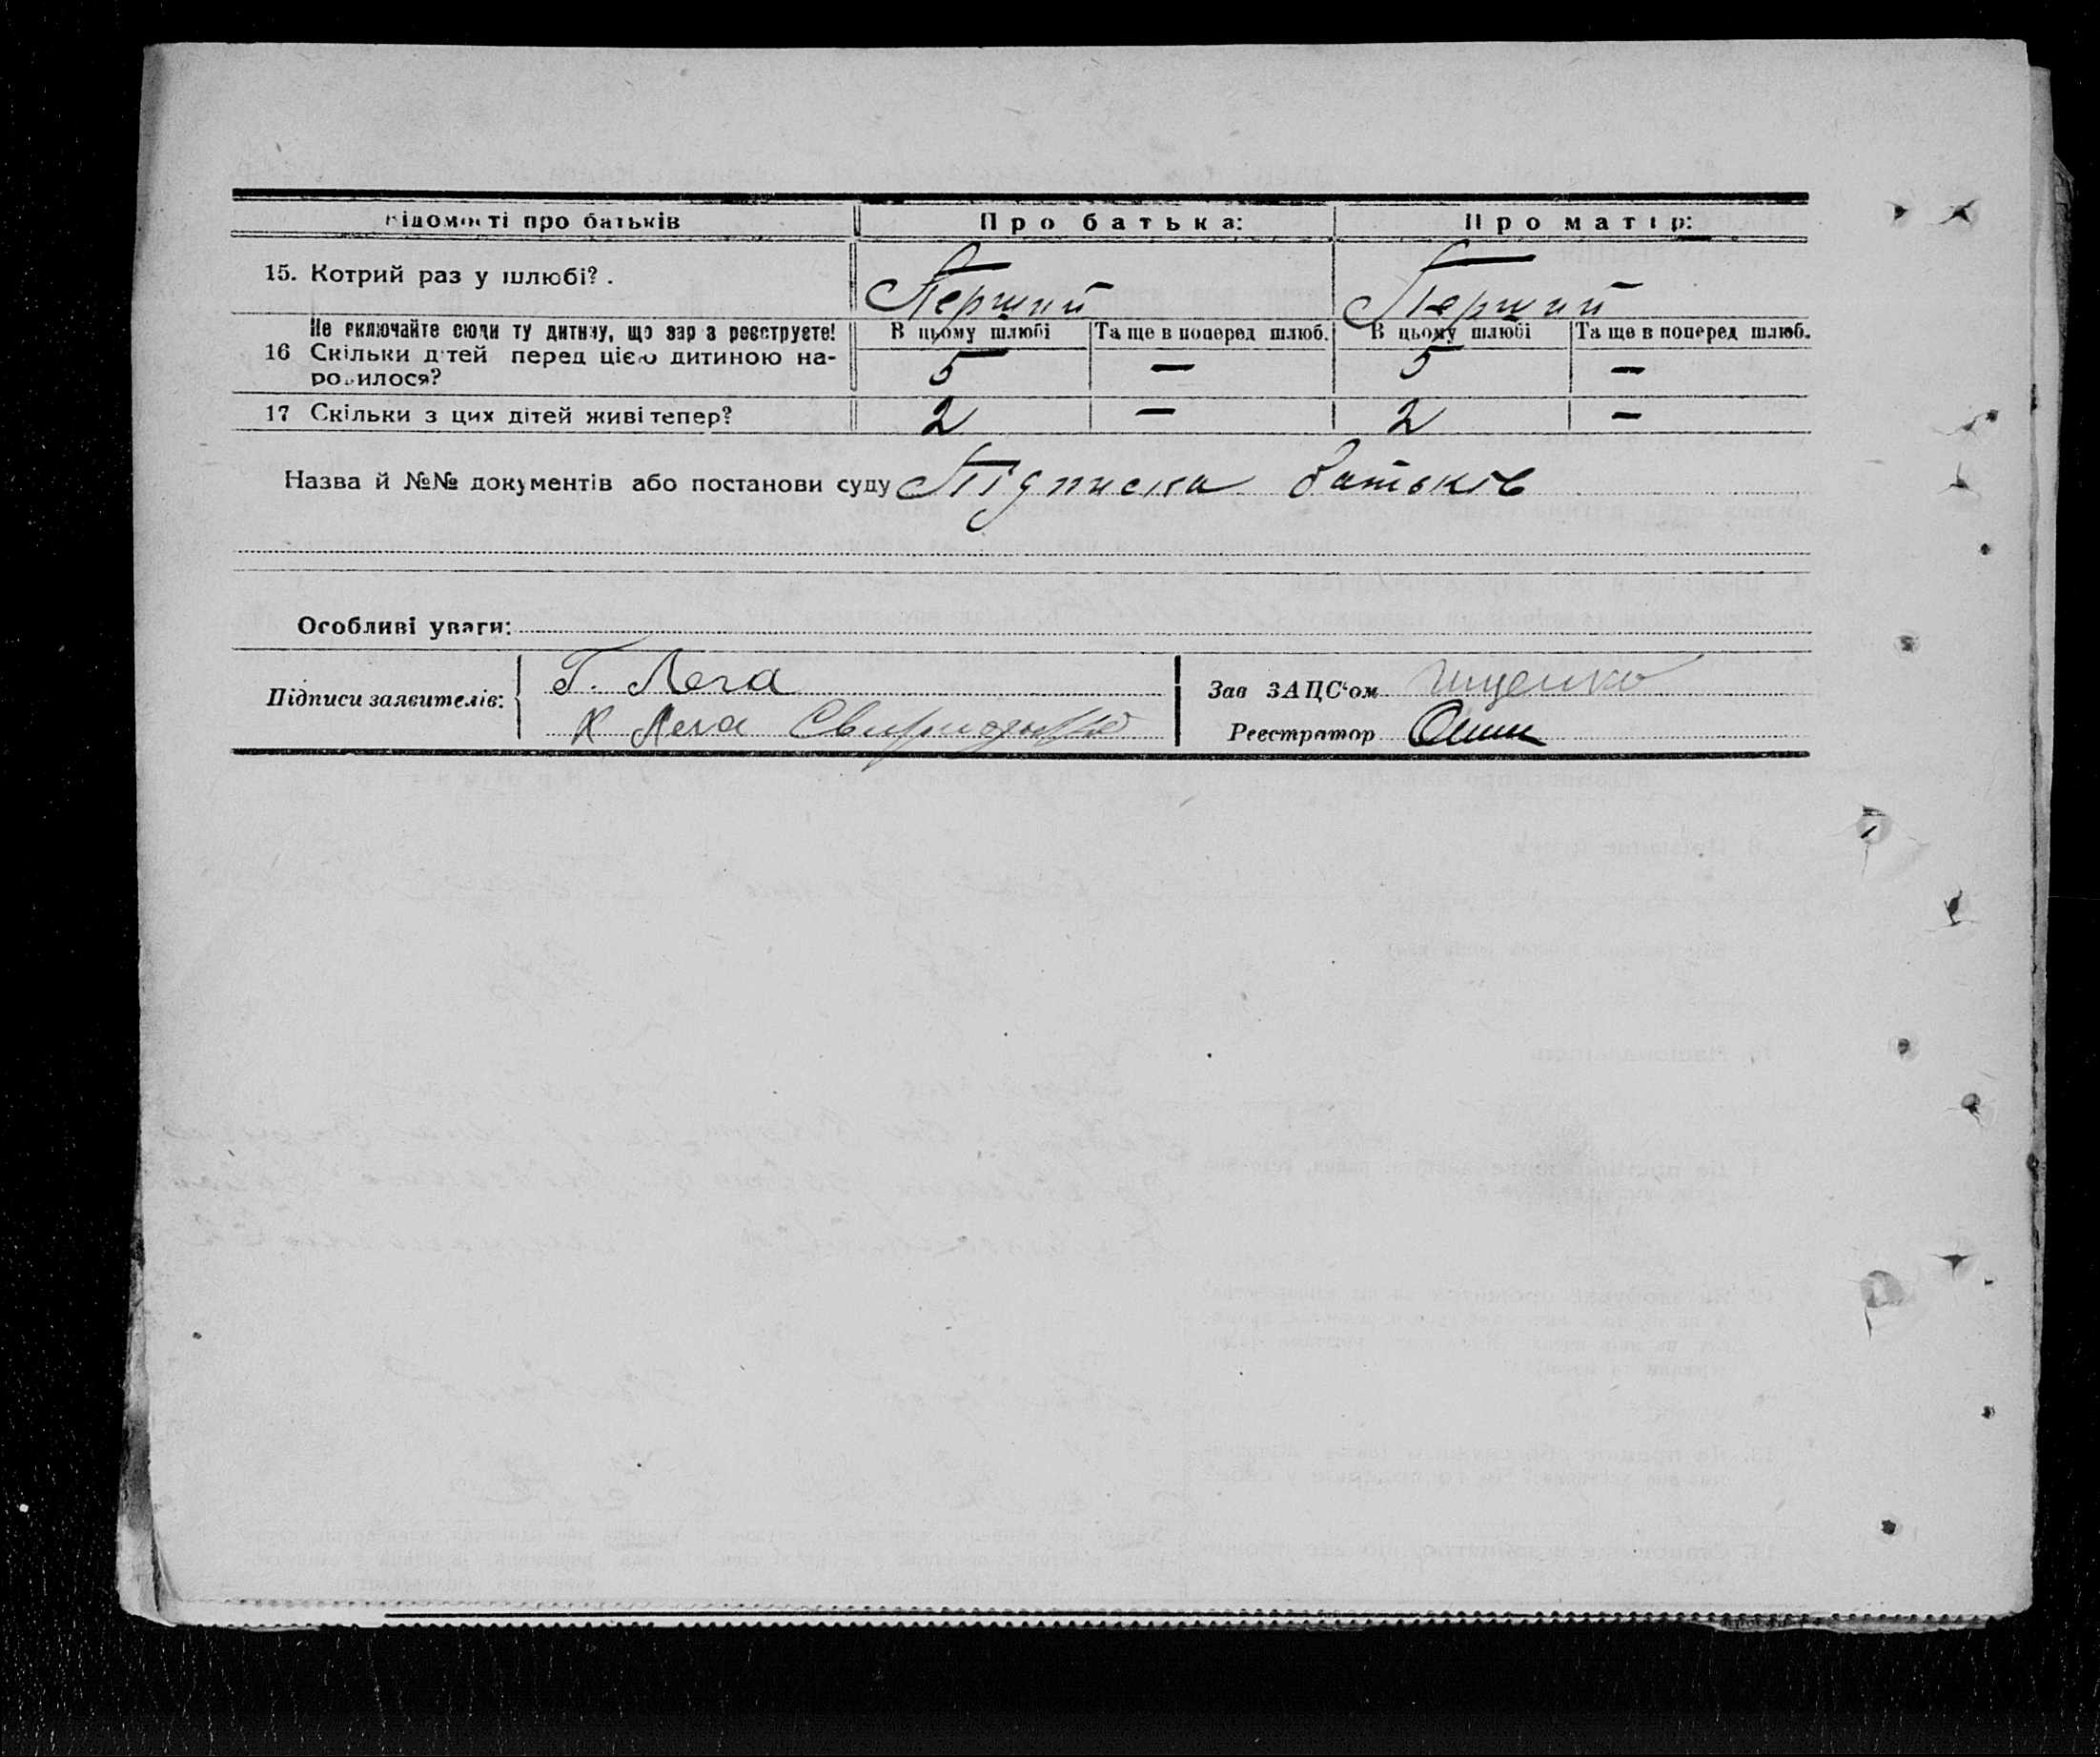 Відомості про батьків Про батька: Про матір:
15. Котрий раз у шлюбі? . Перший Перший
Не включайте сюди ту дитину, що зараз реєструєте! В цьому шлюбі Та ще в поперед шлюб. В цьому шлюбі Та ще в поперед шлюб.
16 Скільки дітей перед цією дитиною на-
родилося? 5 — 5 —
17 Скільки з цих дітей живі тепер? 2 — 2 —
Назва й №№ документів або постанови суду Підписка батьків
Особливі уваги:
Підписи заявителів: Г. Лега
К Лега
Зав ЗАЦС'ом Іщенко
Реєстратор